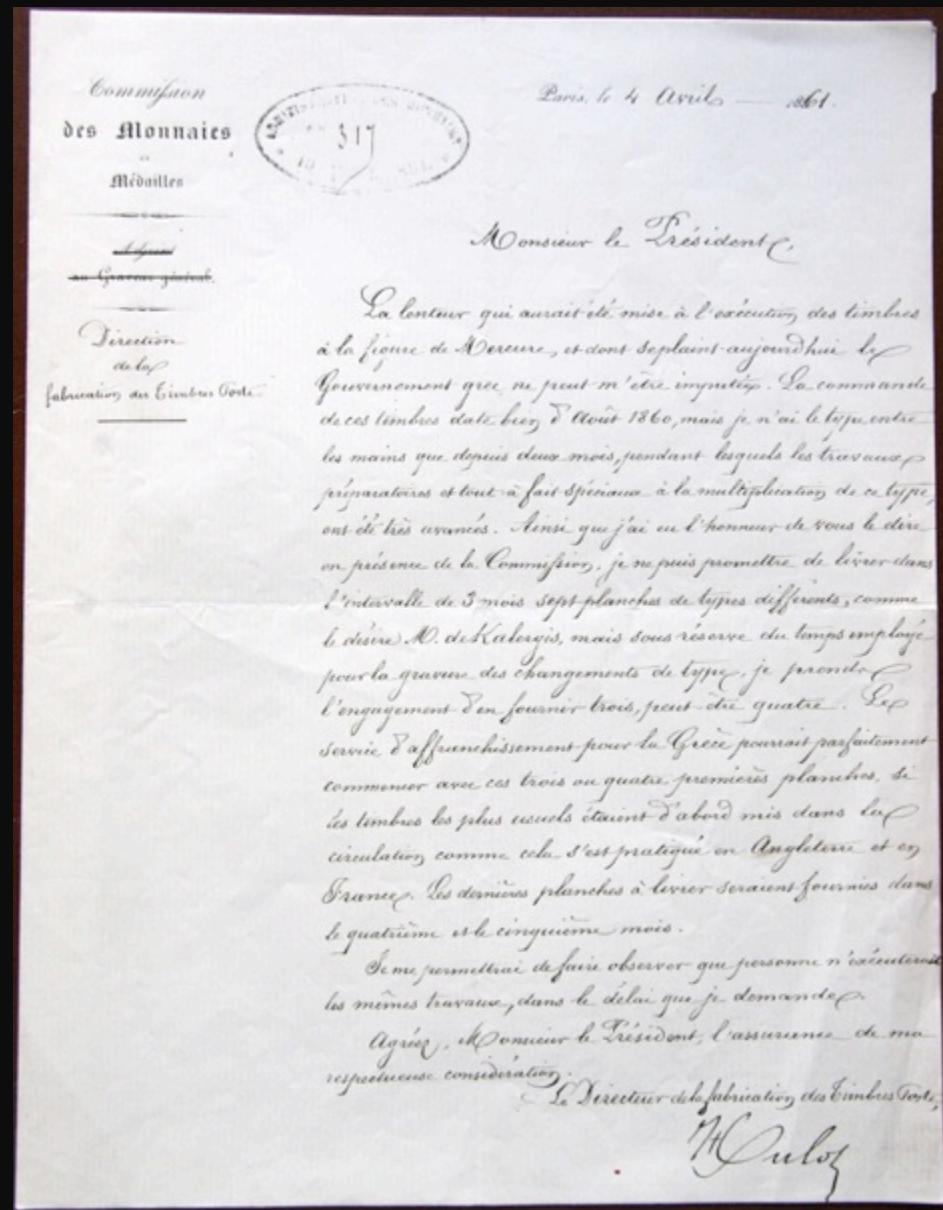 Commission
des Monnaies
et
Médailles
Adjoint
au Graveur général.
Direction
de la
fabrication des Timbres Poste
317
Paris, le 4 Avril 1861.
Monsieur le Président,
La lenteur qui aurait été mise à l'exécution des timbres
à la figure de Mercure, et dont se plaint aujourd'hui le
Gouvernement grec ne peut m'être imputée. La commande
de ces timbres date bien d'Août 1860, mais je n'ai le type entre
les mains que depuis deux mois, pendant lesquels les travaux
préparatoires et tout à fait spéciaux à la multiplication de ce type,
ont été très avancés. Ainsi que j'ai eu l'honneur de vous le dire
en présence de la Commission, je ne puis promettre de livrer dans
l'intervalle de 3 mois sept planches de types différents, comme
le désire M. de Kalergis, mais sous réserve du temps employé
pour la gravure des changements de type, je prends
l'engagement d'en fournir trois, peut-être quatre. Le
service d'affranchissement pour la Grèce pourrait parfaitement
commencer avec ces trois ou quatre premières planches, si
les timbres les plus usuels étaient d'abord mis dans la
circulation comme cela s'est pratiqué en Angleterre et en
France. Les dernières planches à livrer seraient fournies dans
le quatrième et le cinquième mois.
Je me permettrai de faire observer que personne n'exécuterait
les mêmes travaux, dans le délai que je demande.
Agréez, Monsieur le Président, l'assurance de ma
respectueuse considération.
Le Directeur de la fabrication des Timbres Poste,
Hulot